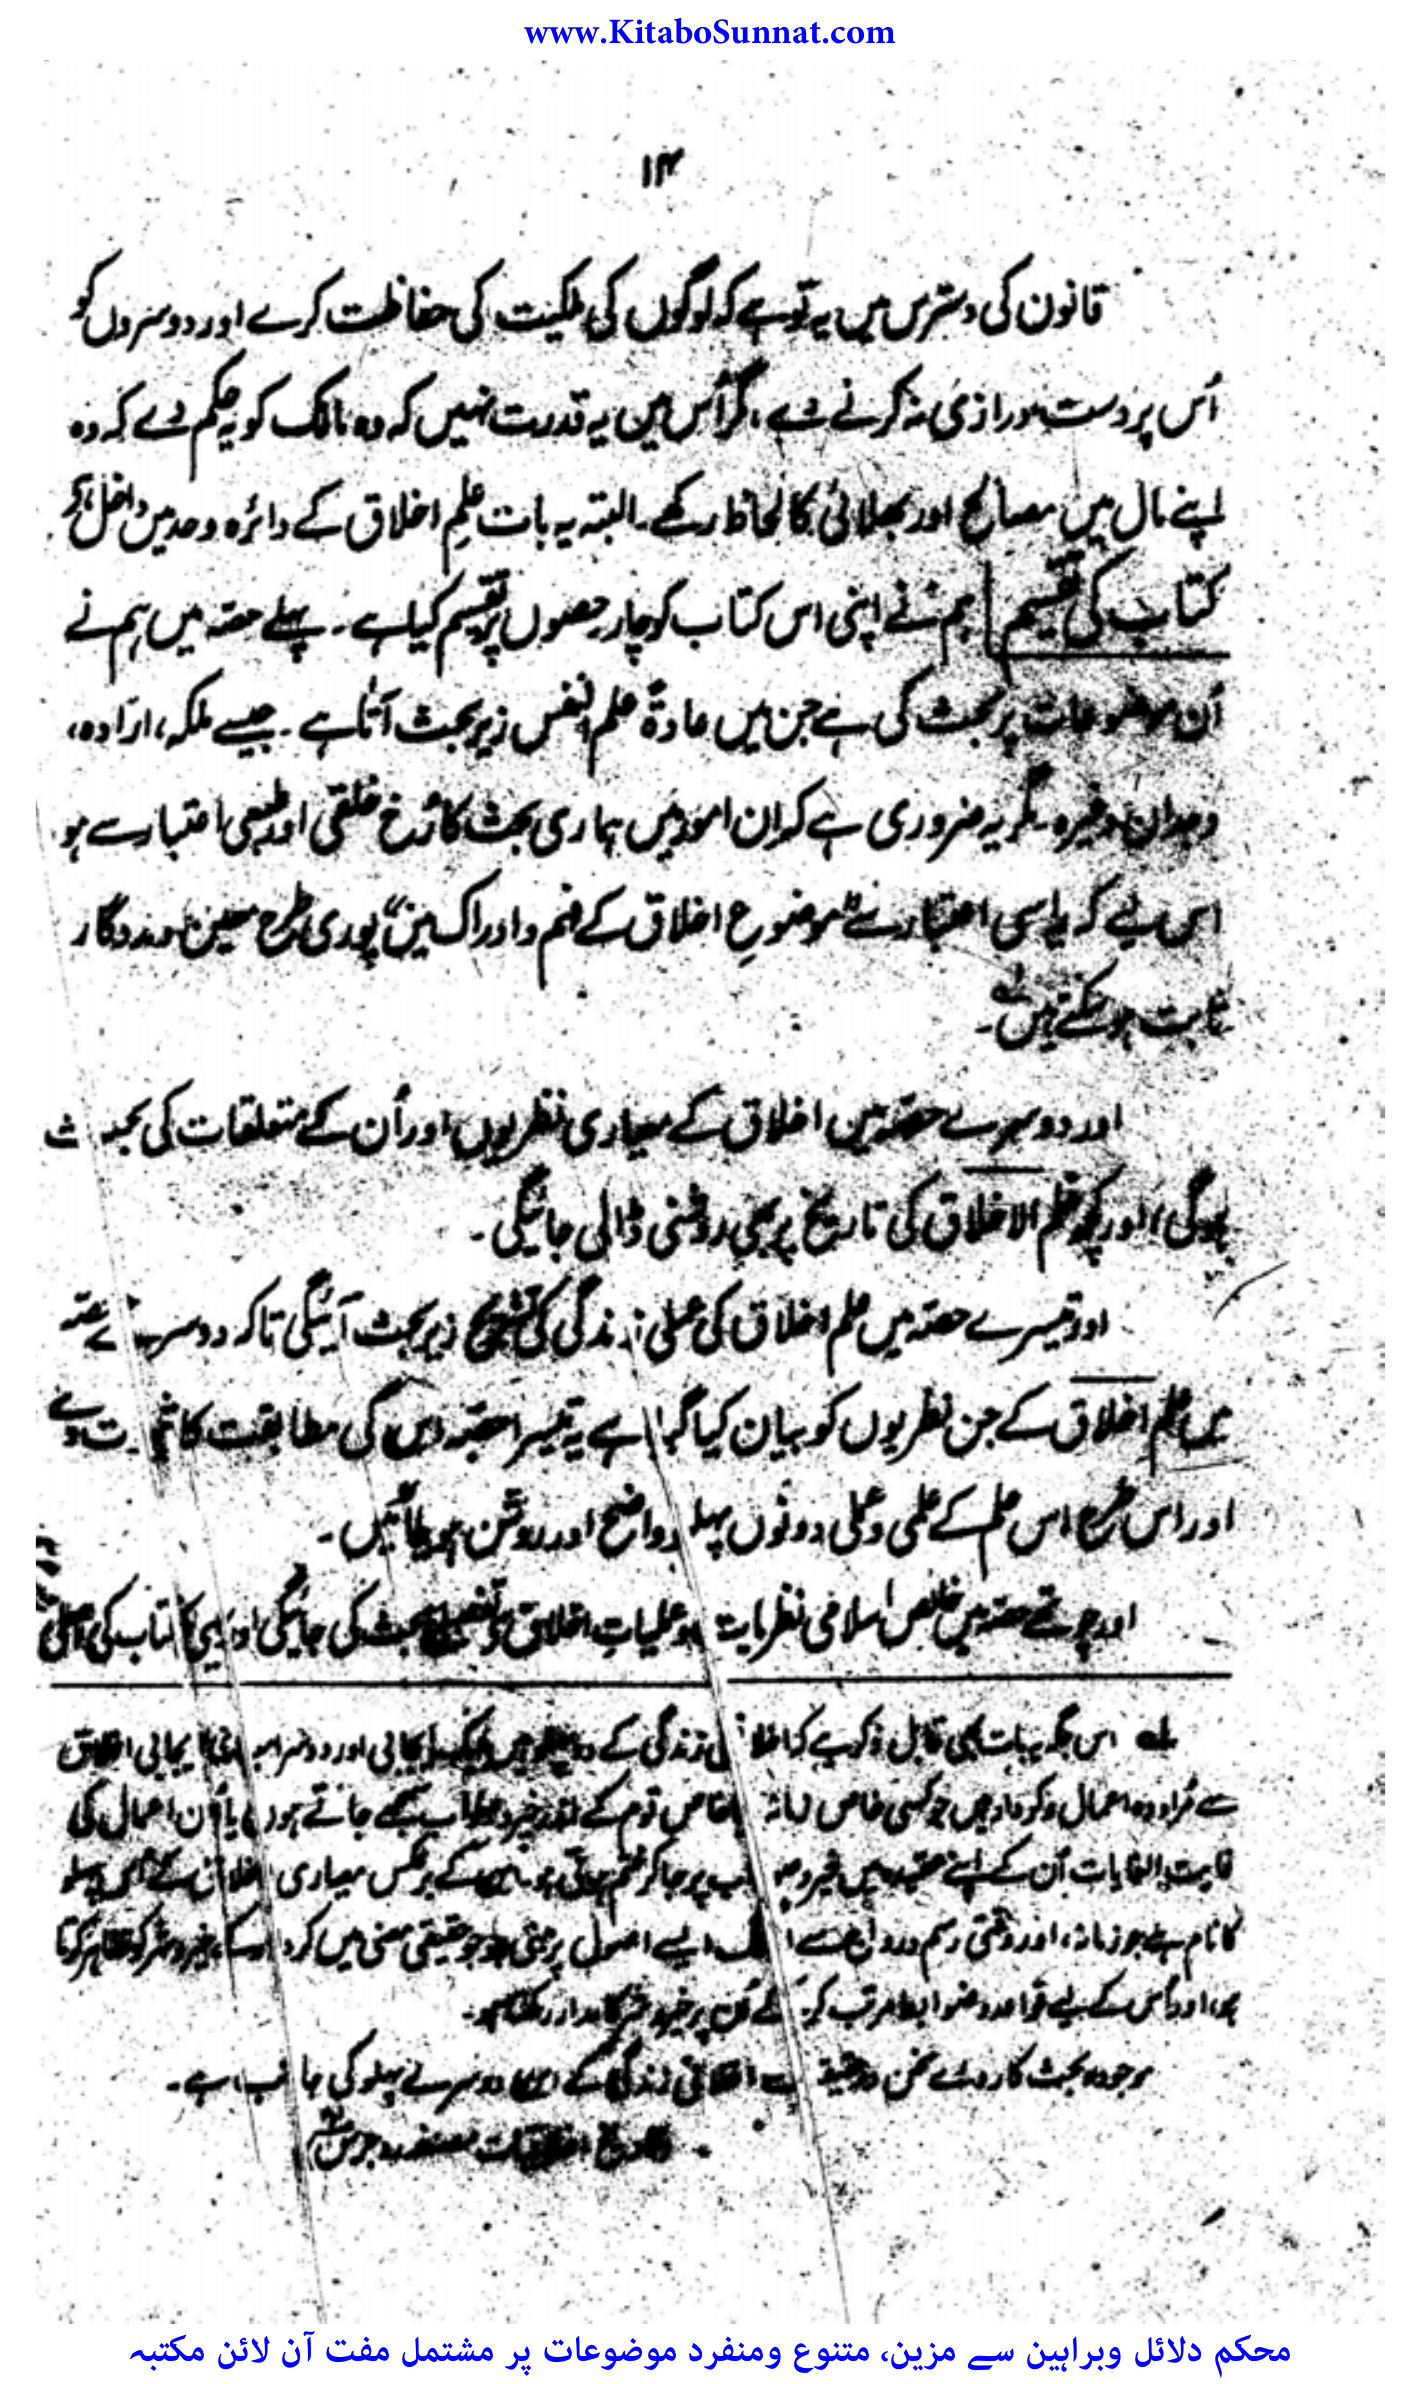 www.KitaboSunnat.com
۱۴
قانون کی دسترس میں یہ تو ہے کہ لوگوں کی ملکیت کی حفاظت کرے اور دوسروں کو
اُس پر دست درازی نہ کرنے دے، مگر اُس میں یہ قدرت نہیں کہ وہ مالک کو یہ حکم دے کہ وہ
اپنے مال میں مصالح اور بھلائی کا لحاظ رکھے۔ البتہ یہ بات علمِ اخلاق کے دائرہ و حد میں داخل ہے
کتاب کی تقسیم | ہم نے اپنی اس کتاب کو چار حصوں پر تقسیم کیا ہے۔ پہلے حصہ میں ہم نے
اُن موضوعات پر بحث کی ہے جن میں عادۃً علم النفس زیر بحث آتا ہے۔ جیسے ملکہ، ارادہ،
وجدان وغیرہ۔ مگر یہ ضروری ہے کہ ان امور میں ہماری بحث کا رُخ خلقی اور طبعی اعتبار سے ہو
اس لیے کہ یہ اسی اعتبار سے "موضوعِ اخلاق کے فہم و ادراک میں" پوری طرح معین و مددگار
ثابت ہو سکتے ہیں۔
اور دوسرے حصہ میں اخلاق کے معیاری نظریوں اور اُن کے متعلقات کی بحث
ہوگی، اور کچھ علم الاخلاق کی تاریخ پر بھی روشنی ڈالی جائیگی۔
اور تیسرے حصہ میں علم اخلاق کی عملی زندگی کی تشریح زیر بحث آئیگی تاکہ دوسرے حصہ
میں علم اخلاق کے جن نظریوں کو بیان کیا گیا ہے یہ تیسرا حصہ اس کی مطابقت کا ثبوت دے
اور اس طرح اس علم کے علمی و عملی دونوں پہلو واضح اور روشن ہو جائیں۔
اور چوتھے حصہ میں خالص اسلامی نظریات و عملیاتِ اخلاق پر تفصیلی بحث کی جائیگی اور یہی کتاب کی اصلی
لے اس جگہ یہ بات بھی قابل ذکر ہے کہ اخلاقی زندگی کے دو پہلو ہیں ایک ایجابی اور دوسرا ایجابی اخلاق
سے مُراد وہ اعمال و کردار ہیں جو کسی خاص زمانہ خاص قوم کے اندر خیر و صواب سمجھے جاتے ہوں یا اُن اعمال کی
غایت الغایات اُن کے اپنے عقیدہ میں خیر و صواب پر جا کر ختم ہوتی ہو۔ اس کے برعکس معیاری اخلاق کے اس پہلو
کا نام ہے جو زمانہ، اور وقتی رسم و رواج سے الگ ایسے اصول پر مبنی ہو جو حقیقی معنی میں کردار کے خیر و شر کو ظاہر کرتا
ہو، اور اُس کے لیے قواعد و ضوابط مرتب کر کے اُن پر خیر و شر کا مدار رکھتا ہو۔
موجودہ بحث کا روئے سخن درحقیقت اخلاقی زندگی کے اس دوسرے پہلو کی جانب ہے۔
محکم دلائل وبراہین سے مزین، متنوع ومنفرد موضوعات پر مشتمل مفت آن لائن مکتبہ